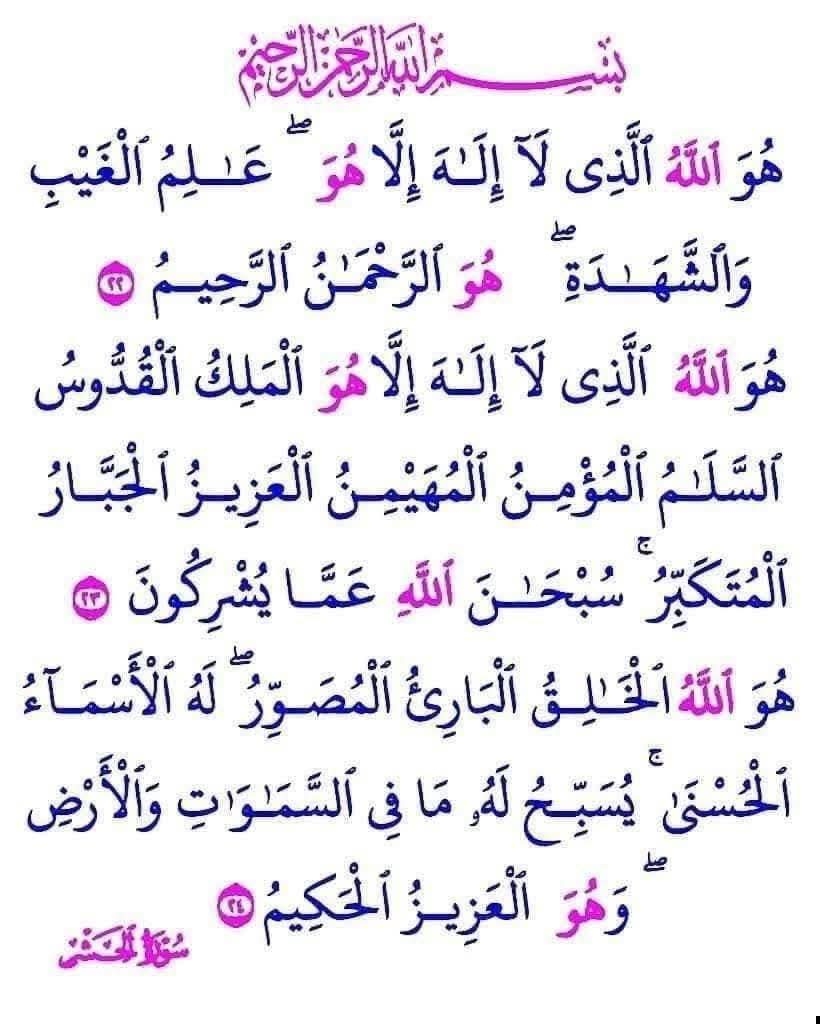 بِسْمِ ٱللَّهِ ٱلرَّحْمَٰنِ ٱلرَّحِيمِ
هُوَ ٱللَّهُ ٱلَّذِى لَآ إِلَٰهَ إِلَّا هُوَ ۖ عَٰلِمُ ٱلْغَيْبِ
وَٱلشَّهَٰدَةِ ۖ هُوَ ٱلرَّحْمَٰنُ ٱلرَّحِيمُ ٢٢
هُوَ ٱللَّهُ ٱلَّذِى لَآ إِلَٰهَ إِلَّا هُوَ ٱلْمَلِكُ ٱلْقُدُّوسُ
ٱلسَّلَٰمُ ٱلْمُؤْمِنُ ٱلْمُهَيْمِنُ ٱلْعَزِيزُ ٱلْجَبَّارُ
ٱلْمُتَكَبِّرُ ۚ سُبْحَٰنَ ٱللَّهِ عَمَّا يُشْرِكُونَ ٢٣
هُوَ ٱللَّهُ ٱلْخَٰلِقُ ٱلْبَارِئُ ٱلْمُصَوِّرُ ۖ لَهُ ٱلْأَسْمَآءُ
ٱلْحُسْنَىٰ ۚ يُسَبِّحُ لَهُۥ مَا فِى ٱلسَّمَٰوَٰتِ وَٱلْأَرْضِ
ۖ وَهُوَ ٱلْعَزِيزُ ٱلْحَكِيمُ ٢٤
سُورَةُ الحَشْرِ